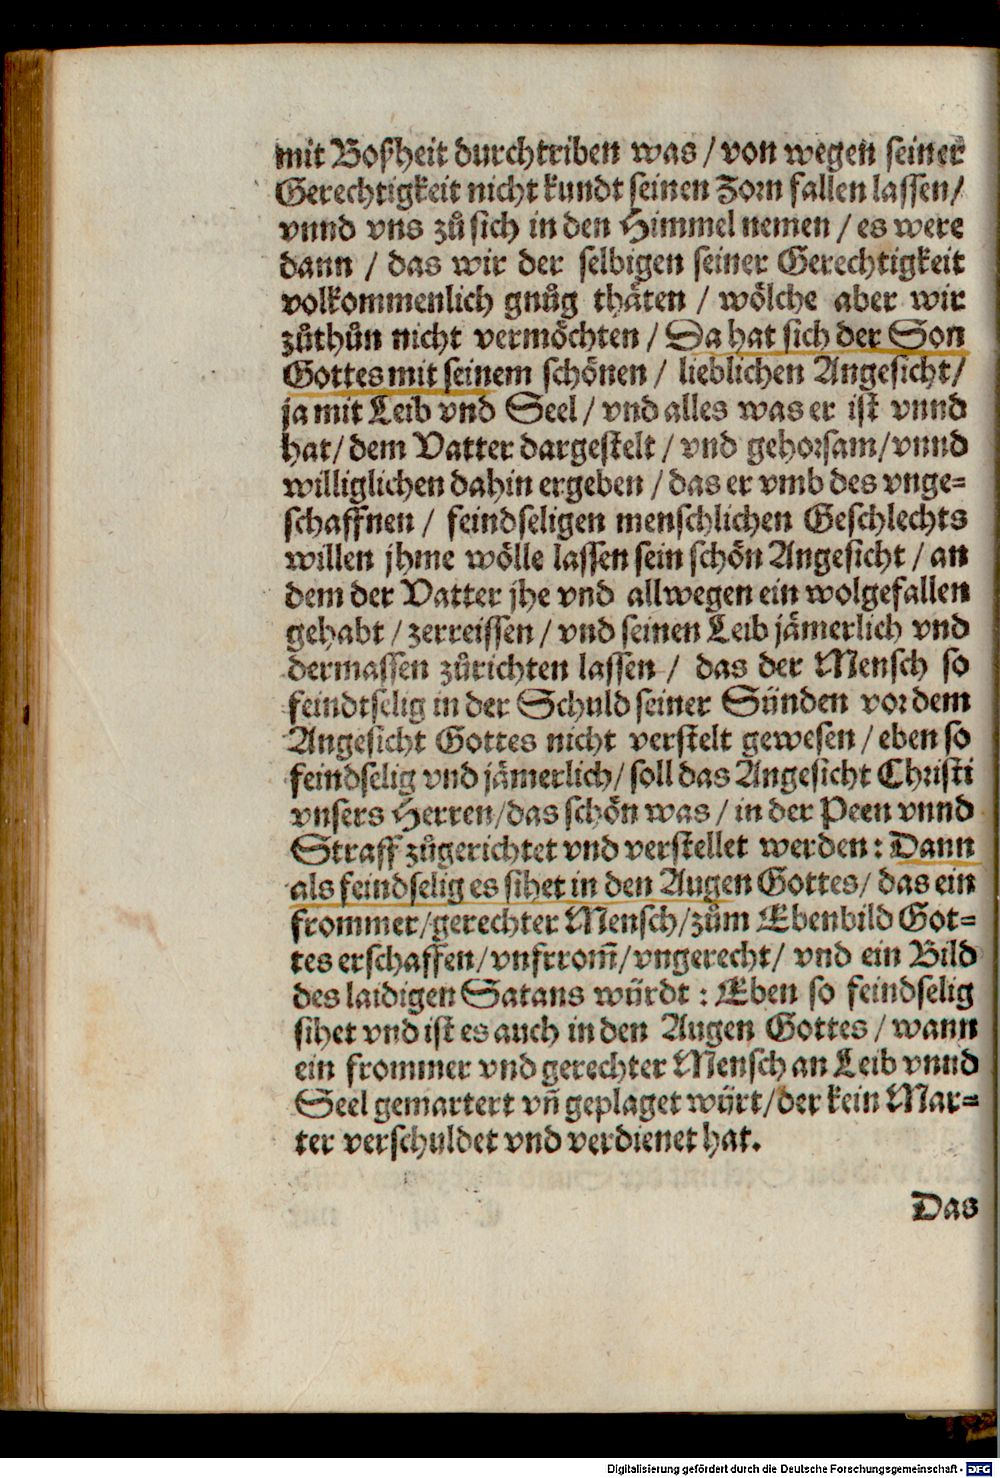 mit Boßheit durchtriben was / von wegen seiner
Gerechtigkeit nicht kundt seinen Zorn fallen lassen /
vnnd vns zů sich in den Himmel nemen / es were
dann / das wir der selbigen seiner Gerechtigkeit
volkommenlich gnůg thäten / wölche aber wir
zůthůn nicht vermöchten / Da hat sich der Son
Gottes mit seinem schönen / lieblichen Angesicht /
ja mit Leib vnd Seel / vnd alles was er ist vnnd
hat / dem Vatter dargestelt / vnd gehorsam / vnnd
williglichen dahin ergeben / das er vmb des vnge=
schaffnen / feindseligen menschlichen Geschlechts
willen jhme wölle lassen sein schön Angesicht / an
dem der Vatter jhe vnd allwegen ein wolgefallen
gehabt / zerreissen / vnd seinen Leib jämerlich vnd
dermassen zůrichten lassen / das der Mensch so
feindtselig in der Schuld seiner Sünden vor dem
Angesicht Gottes nicht verstelt gewesen / eben so
feindselig vnd jämerlich / soll das Angesicht Christi
vnsers Herren / das schön was / in der Peen vnnd
Straff zůgerichtet vnd verstellet werden : Dann
als feindselig es sihet in den Augen Gottes / das ein
frommer / gerechter Mensch / zům Ebenbild Got=
tes erschaffen / vnfrrom̃ / vngerecht / vnd ein Bild
des laidigen Satans würdt : Eben so feindselig
sihet vnd ist es auch in den Augen Gottes / wann
ein frommer vnd gerechter Mensch an Leib vnnd
Seel gemartert vñ geplaget würt / der kein Mar=
ter verschuldet vnd verdienet hat.
Das
Digitalisierung gefördert durch die Deutsche Forschungsgemeinschaft - DFG